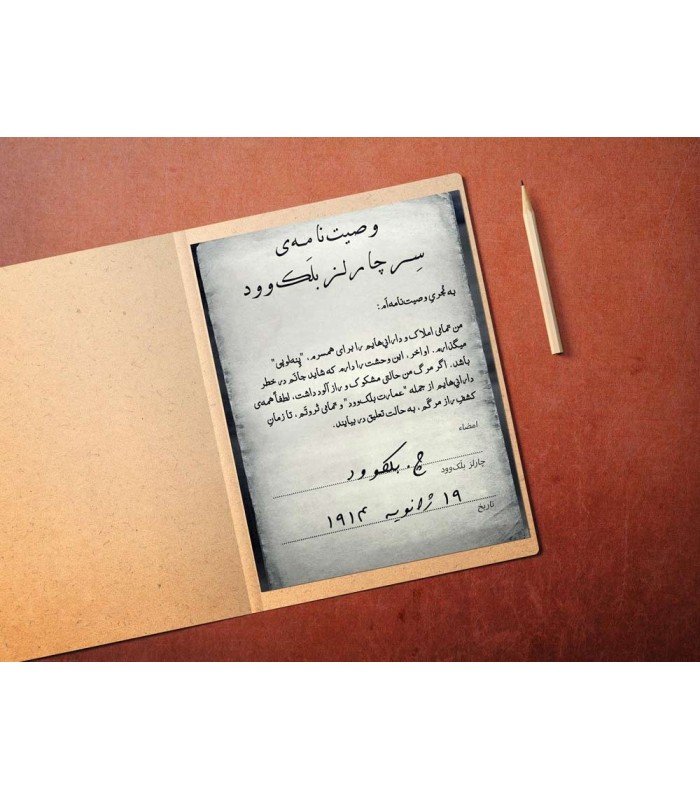 وصیت‌نامه‌ی
سِر چارلز بلَک‌وود
به مُجری وصیت‌نامه‌ام:
من تمامی املاک و دارائی‌هایم را برای همسرم، "پِنه‌لوپی"
میگذارم. اواخر، این وحشت را دارم که شاید جانَم در خطر
باشد. اگر مرگ من حالتی مشکوک و رازآلود داشت، لطفاً همه‌ی
دارائی‌هایم از جمله "عمارت بلک‌وود" و تمامی ثروتَم، تا زمانِ
کشفِ راز مرگم، به حالت تعلیق در بیایند.
امضاء
چ. بلکوود
چارلز بلَک‌وود
۱۹ ژانویه ۱۹۱۴
تاریخ